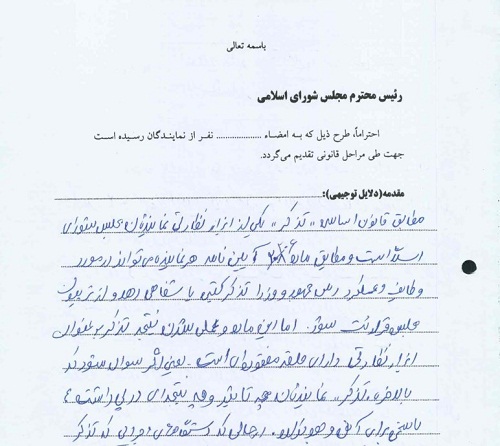 باسمه تعالی
رئیس محترم مجلس شورای اسلامی
احتراماً، طرح ذیل که به امضاء .................... نفر از نمایندگان رسیده است
جهت طی مراحل قانونی تقدیم می‌گردد.
مقدمه(دلایل توجیهی):
مطابق قانون اساسی "تذکر" یکی از ابزار نظارتی نمایندگان مجلس شورای
اسلامی است و مطابق ماده آیین نامه هر نماینده می‌تواند در مورد
وظایف و عملکرد رئیس جمهور و وزرا تذکر کتبی یا شفاهی دهد و از تریبون
مجلس قرائت شود. اما این ماده و عملی شدن نتیجه تذکر به عنوان
ابزار نظارتی دارای حلقه مفقوده‌ای است. یعنی اگر سوال شود که
بالاخره "تذکر" نمایندگان چه تاثیر و چه نتیجه‌ای در پی داشت؟
پاسخی برای آن وجود ندارد. در حالی که که تذکر